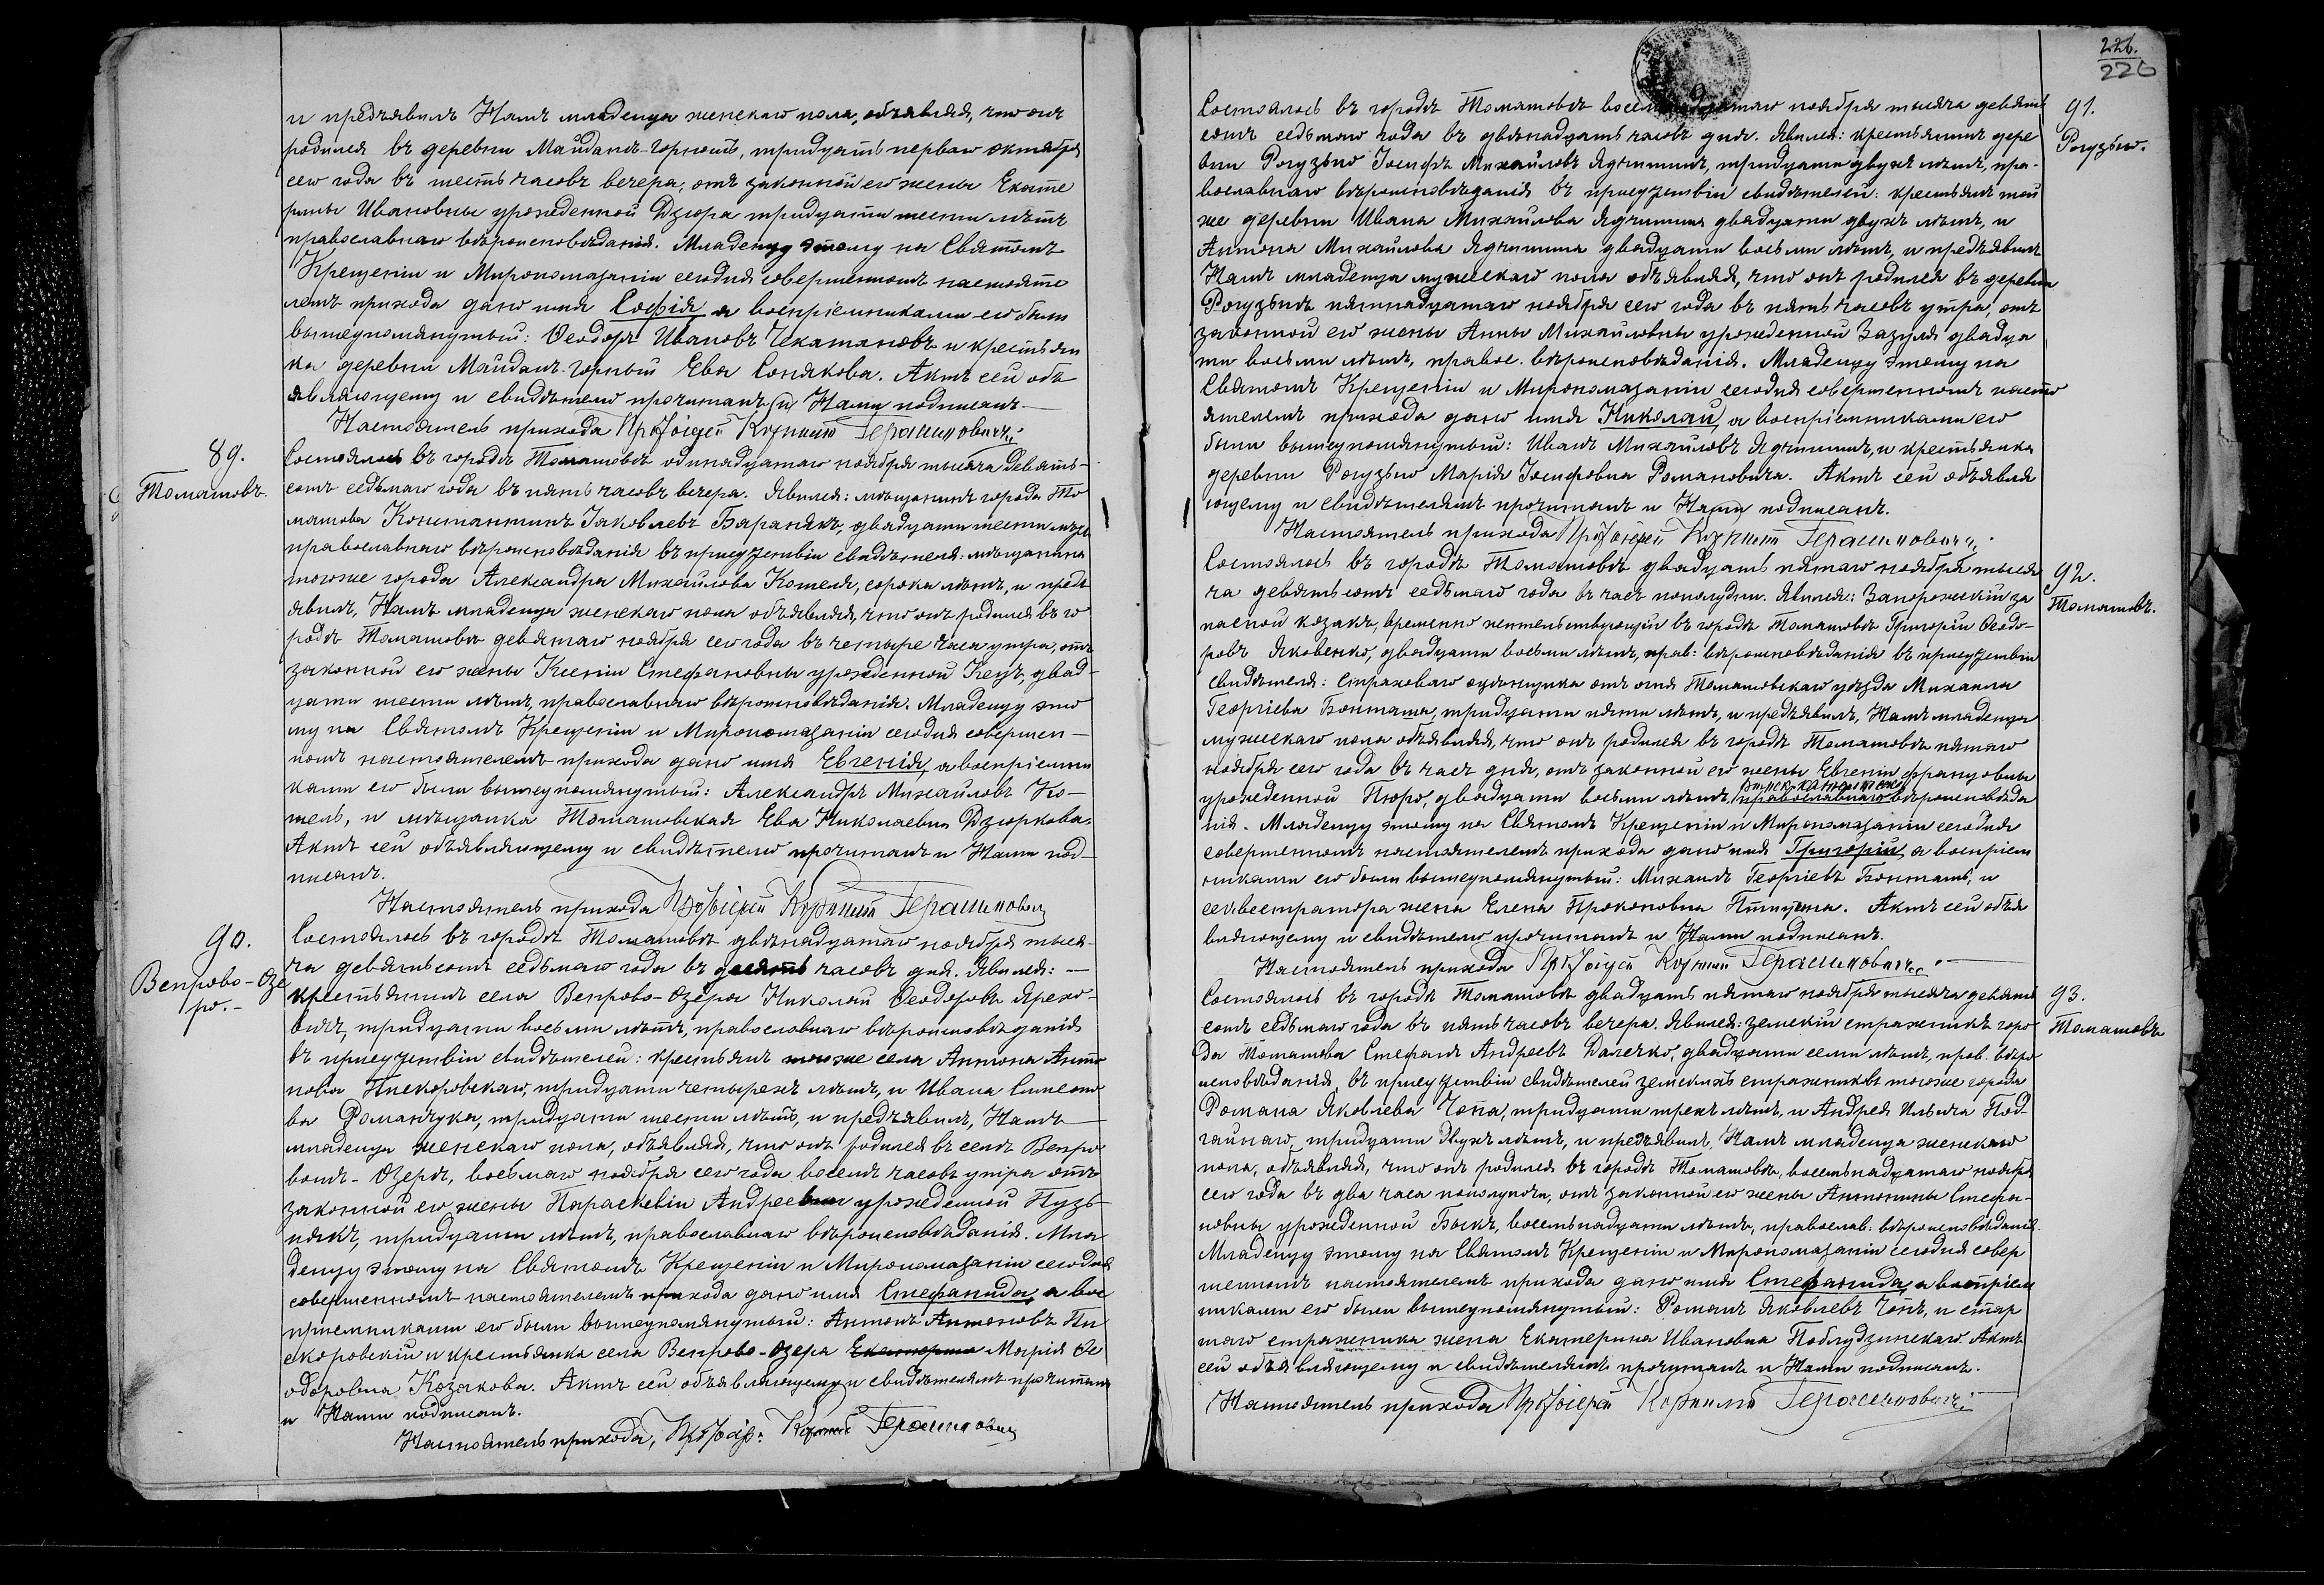 и предъявилъ Намъ младенца женскаго пола, объявляя, что онъ
родился въ деревни Майданъ-горномъ, тридцать перваго октября
сего года въ шесть часовъ вечера, отъ законной его жены Екате
рины Ивановны урожденной Дзюра тридцати шести лѣтъ
православнаго вѣроисповѣданія. Младенцу этому на Святомъ
Крещеніи и Миропомазаніи сегодня совершенномъ настояте
лемъ прихода дано имя Софія а воспріемниками его были
вышеупомянутый: Ѳеодоръ Ивановъ и крестьян
ка деревни Майданъ-горный Ева Сонякова. Актъ сей объ
являющему и свидѣтелю прочитанъ и Нами подписанъ.
Настоятель прихода Протоіерей Корнилій Герасимовичъ
89.
Томашовъ.
Состоялось въ городѣ Томашовѣ одинадцатаго ноября тысяча девять-
сотъ седьмаго года въ пять часовъ вечера. Явился: мѣщанинъ города То
машова Константинъ Іаковлевъ Баранякъ, двадцати шести лѣтъ
православнаго вѣроисповѣданія въ присутствіи свидѣтеля: мѣщанина
тогоже города Александра Михайлова Комеля, сорока лѣтъ, и предъ
явилъ, Намъ младенца женскаго пола объявляя, что онъ родился въ го
родѣ Томашовѣ девятаго ноября сего года въ четыре часа утра, отъ
законной его жены Ксеніи Стефановны урожденной Кецъ, двад-
цати шести лѣтъ, православнаго вѣроисповѣданія. Младенцу это
му на Святомъ Крещеніи и Миропомазаніи сегодня совершен-
номъ настоятелемъ прихода дано имя Евгенія, а воспріемни
ками его были вышеупомянутый: Александръ Михайловъ Ко-
мель, и мѣщанка Томашовская Ева Николаевна Дзюркова.
Актъ сей объявляющему и свидѣтелю прочитанъ и Нами под-
писанъ.
Настоятель прихода Протоіерей Корнилій Герасимовичъ
90.
Вепрово-Озе
ро.-
Состоялось въ городѣ Томашовѣ двѣнадцатаго ноября тыся-
ча девятьсотъ седьмаго года въ десять часовъ дня. Явился: -
крестьянинъ села Вепрово-Озера Николай Ѳеодоровъ
тридцати восьми лѣтъ, православнаго вѣроисповѣданія
въ присутствіи свидѣтелей: крестьянъ тогоже села Антона Анто
нова Пискоровскаго, тридцати четырехъ лѣтъ, и Ивана Симеоно
ва Романчука, тридцати шести лѣтъ, и предъявилъ, Намъ
младенца женскаго пола, объявляя, что онъ родился въ селѣ Вепро
вомъ-Озерѣ, восьмаго ноября сего года восемъ часовъ утра отъ
законной его жены Параскевіи Андреевны урожденной Пузь-
някъ, тридцати лѣтъ, православнаго вѣроисповѣданія. Мла
денцу этому на Святомъ Крещеніи и Миропомазаніи сегодня
совершенномъ настоятелемъ прихода дано имя Стефанида, а вос
пріемниками его были вышеупомянутый: Антонъ Антоновъ Пи
скоровскій и крестьянка села Вепрово-Озера Екатерина Марія Ѳе
одоровна Козакова. Актъ сей объявляющему и свидѣтелямъ прочитанъ
и Нами подписанъ.
Настоятель прихода, Протоіер: Корнилій Герасимовичъ
226.
226
91.
Рогузьно.
Состоялось въ городѣ Томашовѣ восемнадцатаго ноября тысяча девять
сотъ седьмаго года въ двѣнадцать часовъ дня. Явился: крестьянинъ дере
вни Рогузьно Іосифъ Михайловъ Ядчишинъ, тридцати двухъ лѣтъ, пра-
вославнаго вѣроисповѣданія въ присутствіи свидѣтелей: крестьянъ той
же деревни Ивана Михайлова Ядчишина двадцати двухъ лѣтъ, и
Антона Михайлова Ядчишина двадцати восьми лѣтъ, и предъявилъ
Намъ младенца мужскаго пола объявляя, что онъ родился въ деревни
Рогузьнѣ пятнадцатаго ноября сего года въ пять часовъ утра, отъ
законной его жены Анны Михайловны урожденной Зазуля двадца
ти восьми лѣтъ, правос. вѣроисповѣданія. Младенцу этому на
Святомъ Крещеніи и Миропомазаніи сегодня совершенномъ насто
ятелемъ прихода дано имя Николай, а воспріемниками его
были вышеупомянутый: Иванъ Михайловъ Ядчишинъ, и крестьянка
деревни Рогузьно Марія Іосифовна Романовича. Актъ сей объявля
ющему и свидѣтелямъ прочитанъ и Нами подписанъ.
Настоятель прихода Протоіерей Корнилій Герасимовичъ
92.
Томашовъ.
Состоялось въ городѣ Томашовѣ двадцать пятаго ноября тыся
ча девятьсотъ седьмаго года въ часъ пополудни. Явился: Запорожскій за
пасной козакъ, временно жительствующій въ городѣ Томашовѣ Григорій Ѳеодо-
ровъ Яковенко, двадцати восьми лѣтъ, прав: вѣроисповѣданія въ присутствіи
свидѣтеля: страховаго оцѣнщика отъ огня Томашовскаго уѣзда Михаила
Георгіева Бокташа, тридцати пяти лѣтъ, и предъявилъ, Намъ младенца
мужскаго пола объявляя, что онъ родился въ городѣ Томашовѣ пятаго
ноября сего года въ часъ дня, отъ законной его жены Евгеніи Францовны
урожденной Пюро, двадцати восьми лѣтъ, римск-католическ православнаго вѣроисповѣда
нія. Младенцу этому на Святомъ Крещеніи и Миропомазаніи сегодня
совершенномъ настоятелемъ прихода дано имя Григорій, а воспріем
никами его были вышеупомянутый: Михаилъ Георгіевъ Бокташъ, и
жена Елена Прокоповна Птицына. Актъ сей объя
вляющему и свидѣтелю прочитанъ и Нами подписанъ.
Настоятель прихода Протоіерей Корнилій Герасимовичъ
93.
Томашовъ
Состоялось въ городѣ Томашовѣ двадцать пятаго ноября тысяча девять
сотъ седьмаго года въ пять часовъ вечера. Явился: земскій стражникъ горо
да Томашова Стефанъ Андреевъ Далечко, двадцати семи лѣтъ, прав. вѣро
исповѣданія, въ присутствіи свидѣтелей земскихъ стражниковъ тогоже города
Романа Яковлева Чопа, тридцати трехъ лѣтъ, и Андрея Ильича Под
гайнаго, тридцати двухъ лѣтъ, и предъявилъ, Намъ младенца женскаго
пола, объявляя, что онъ родился въ городѣ Томашовѣ, восемьнадцатаго ноября
сего года въ два часа пополуночи, отъ законной его жены Антонины Стефа-
новны урожденной Быкъ, восемьнадцати лѣтъ, православ: вѣроисповѣданія.
Младенцу этому на Святомъ Крещеніи и Миропомазаніи сегодня совер
шенномъ настоятелемъ прихода дано имя Стефанида, а воспріем
никами его были вышеупомянутый: Романъ Яковлевъ Чопъ, и стар
шаго стражника жена Екатерина Ивановна Поблудзинскаго. Актъ
сей объявляющему и свидѣтелямъ прочитанъ и Нами подписанъ.
Настоятель прихода Протоіерей Корнилій Герасимовичъ